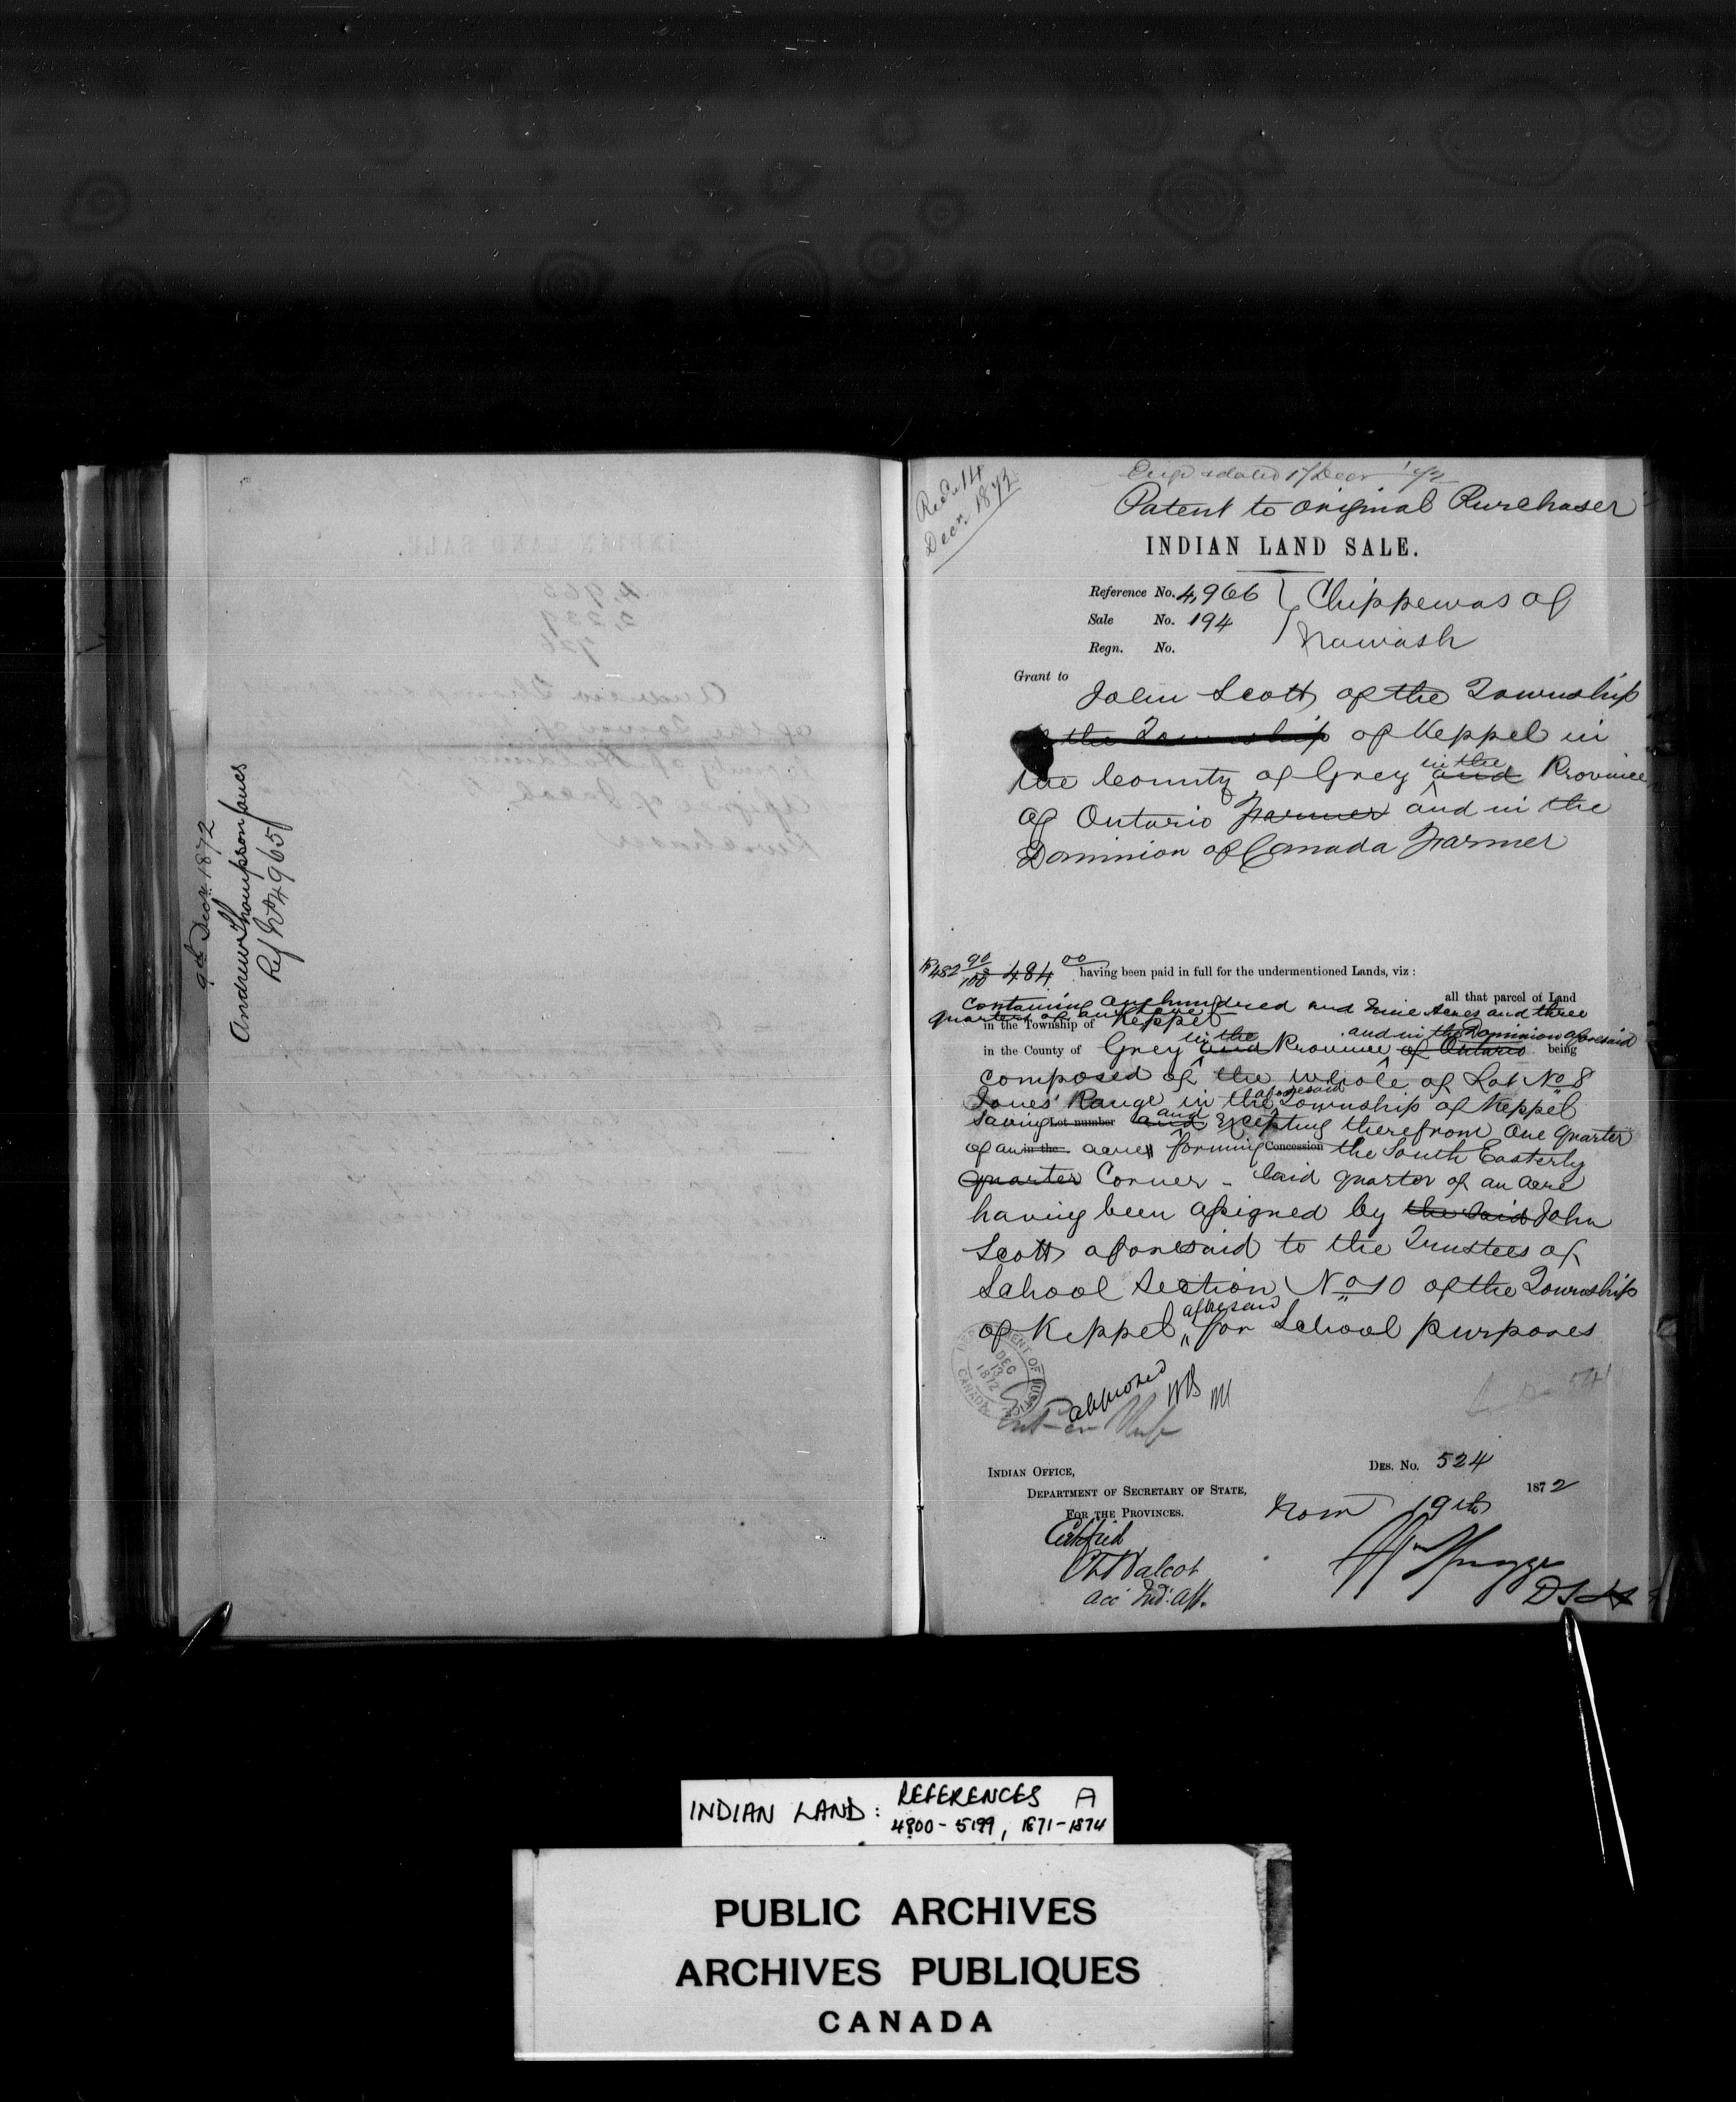 9th Decr 1872
Andrew Thompson Jones
Ref No 4965
Recd. 14
Decr. 1872
Patent to original Purchaser
INDIAN LAND SALE.
Reference No. 4,966 } Chippewas of
Sale No. 194 Nawash
Regn. No.
Grant to
John Scott of the Township
the Township of Keppel in
the County of Grey in the and Province
of Ontario Farmer and in the
Dominion of Canada Farmer
$482 90/100 484 00 having been paid in full for the undermentioned Lands, viz :
all that parcel of Land
containing one hundred and nine acres and three
quarters of an acre
in the Township of Keppel
and in the Dominion aforesaid
in the County of Grey in the and Province of Ontario being
composed of the whole of Lot No 8
Jones' Range in the aforesaid Township of Keppel
saving Lot number and and Excepting therefrom One quarter
of an in the acre forming Concession the South Easterly
quarter Corner - Said quarter of an acre
having been assigned by the said John
Scott aforesaid to the Trustees of
School Section No 10 of the Township
of Keppel aforesaid for School purposes
DEPARTMENT OF JUSTICE
DEC
13
1872
CANADA
approved
Des. No. 524
Indian Office,
Department of Secretary of State,
For the Provinces.
Novr 19th 1872
Certified
Walcot
acc Ind. Aff.
INDIAN LAND : REFERENCES A
4800 - 5199, 1871-1874
PUBLIC ARCHIVES
ARCHIVES PUBLIQUES
CANADA